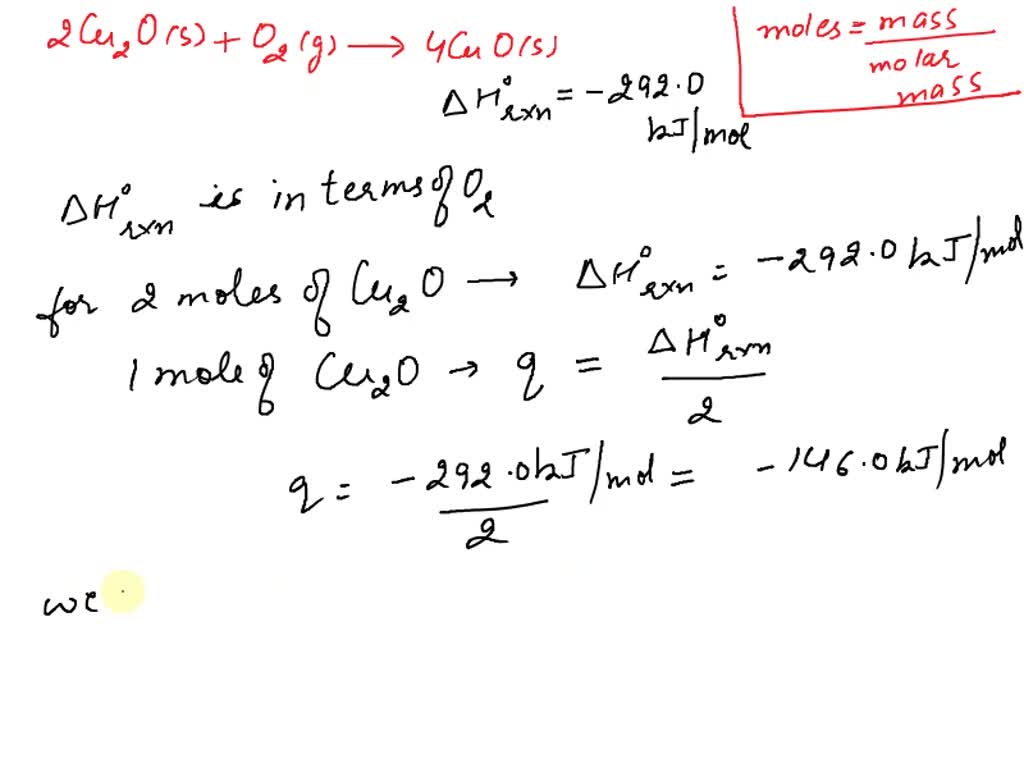 2Cu₂O(s) + O₂(g) → 4CuO(s)
moles = mass / molar mass
ΔH°rxn = -292.0 kJ/mol
ΔH°rxn is in terms of O₂
for 2 moles of Cu₂O → ΔH°rxn = -292.0 kJ/mol
1 mole of Cu₂O → q = ΔH°rxn / 2
q = -292.0kJ/mol / 2 = -146.0kJ/mol
we